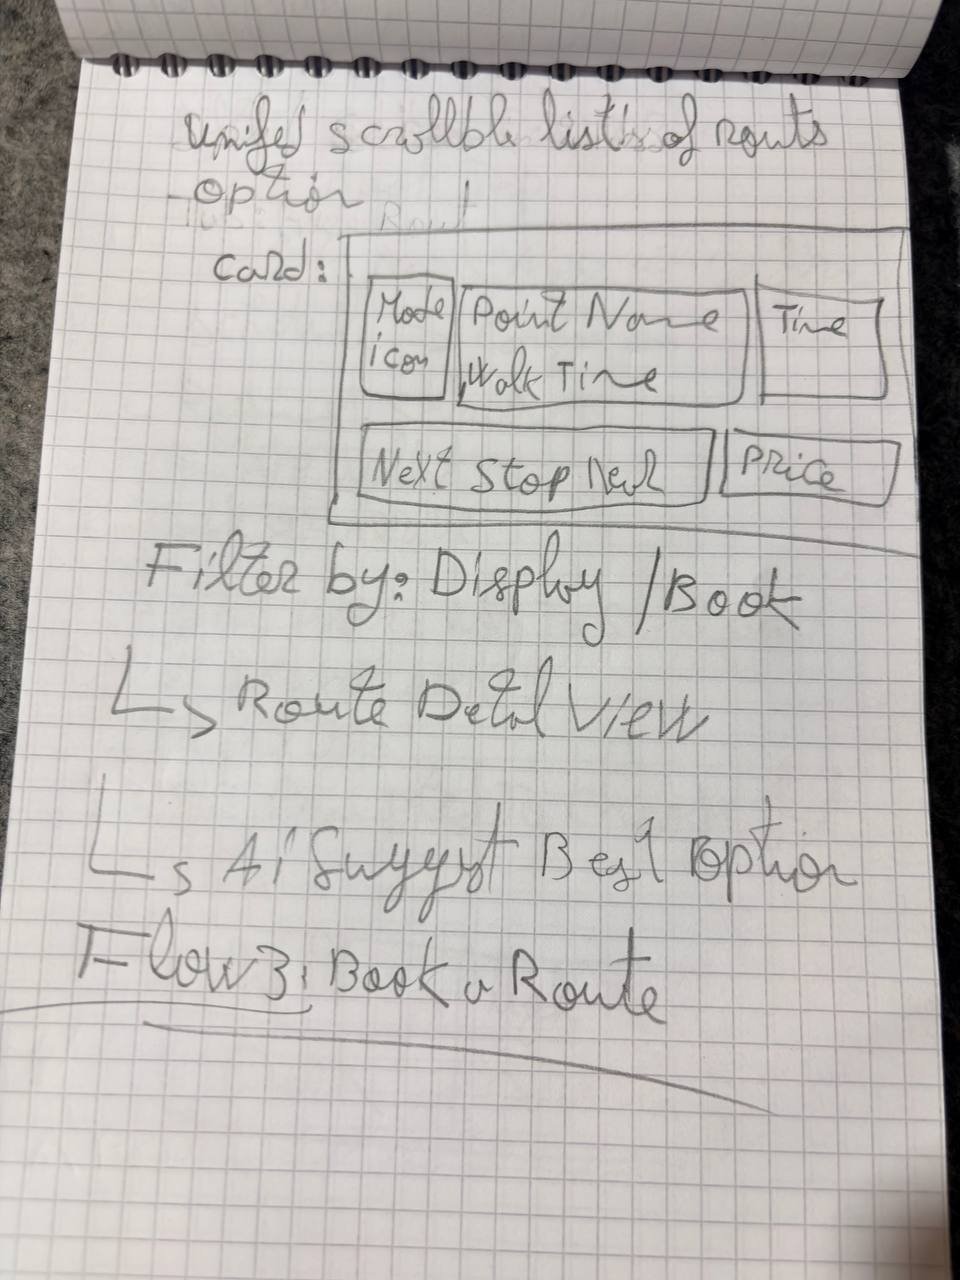 unifed scrollble list of routs
option
Card:
Mode
icon
Point Name
Walk Time
Time
Next Stop
Price
Filter by: Display / Book
Route Detal View
Ai Suggest Best option
Flow 3: Book a Route